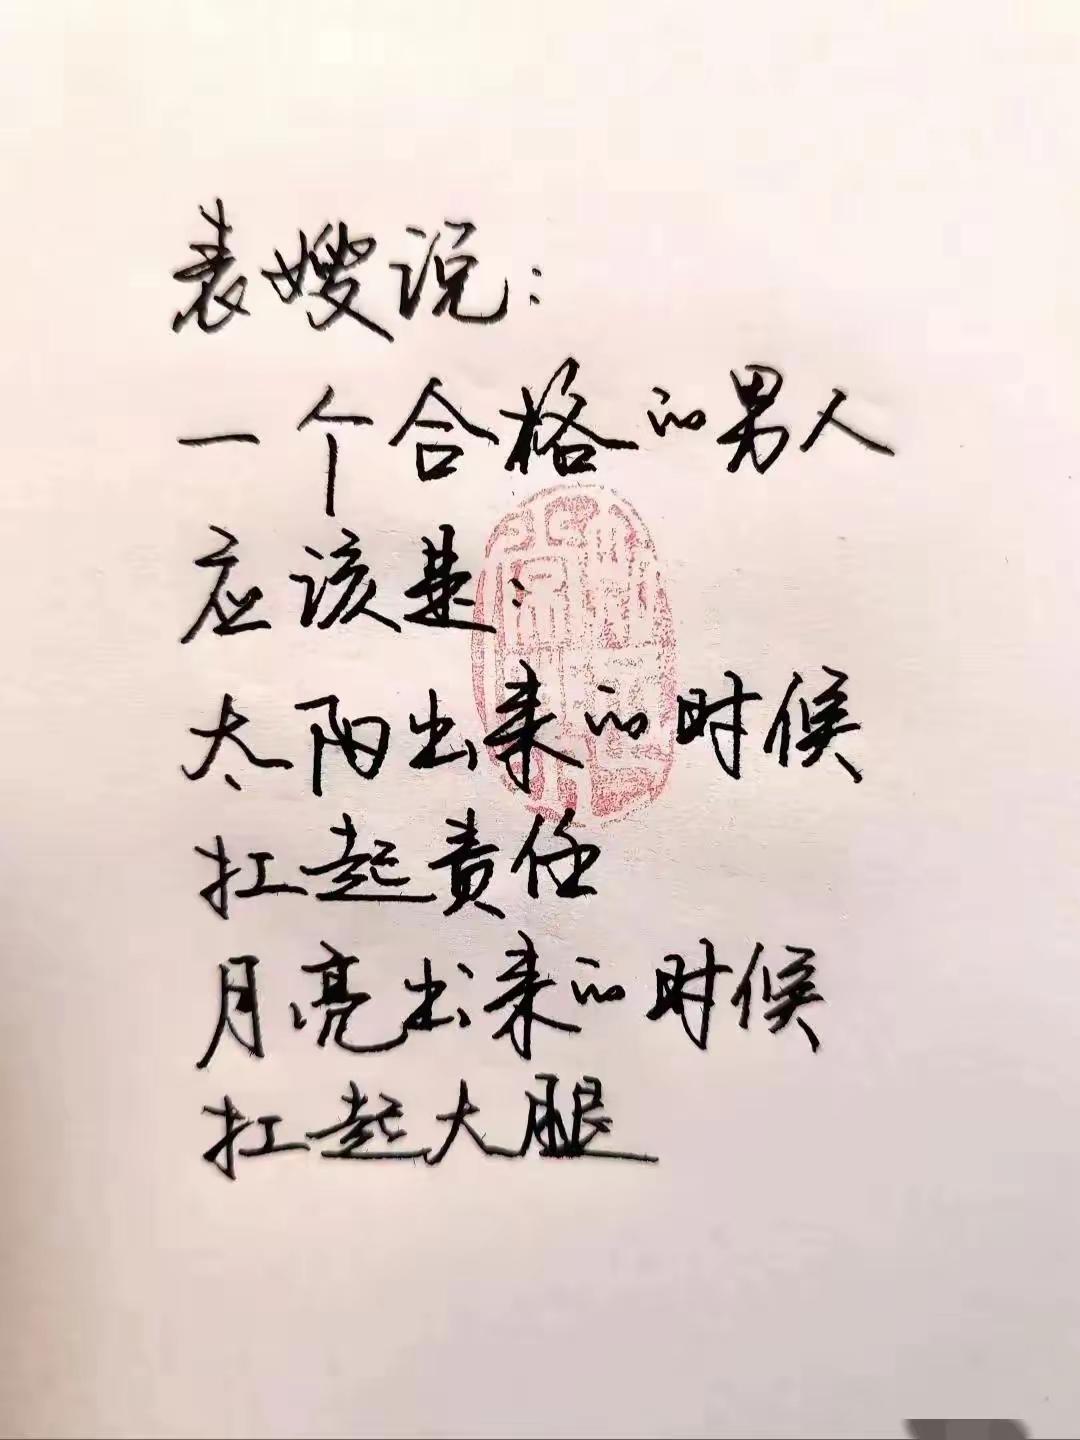 表嫂说：
一个合格的男人
应该是：
太阳出来的时候
扛起责任
月亮出来的时候
扛起大腿